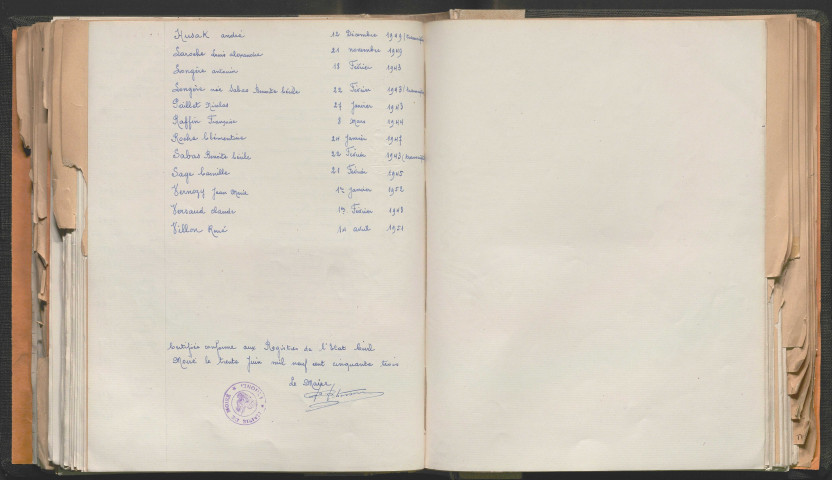 Kusak André 12 Décembre 1949
Laroche Louis Alexandre 21 novembre 1949
Longère Antonin 18 Février 1943
Longère née Sabas Benoîte Cécile 22 Février 1943
Paillet Nicolas 27 Janvier 1943
Raffin Françoise 8 Mars 1944
Roche Clémentine 20 Janvier 1947
Sabas Benoîte Cécile 22 Février 1943
Sage Camille 21 Février 1945
Vernozy Jean Marie 12 Janvier 1952
Versaud Claude 19 Février 1948
Villon René 10 avril 1951
Certifiée conforme aux Registres de l'Etat Civil
le trente Juin mil neuf cent cinquante trois
Le Maire